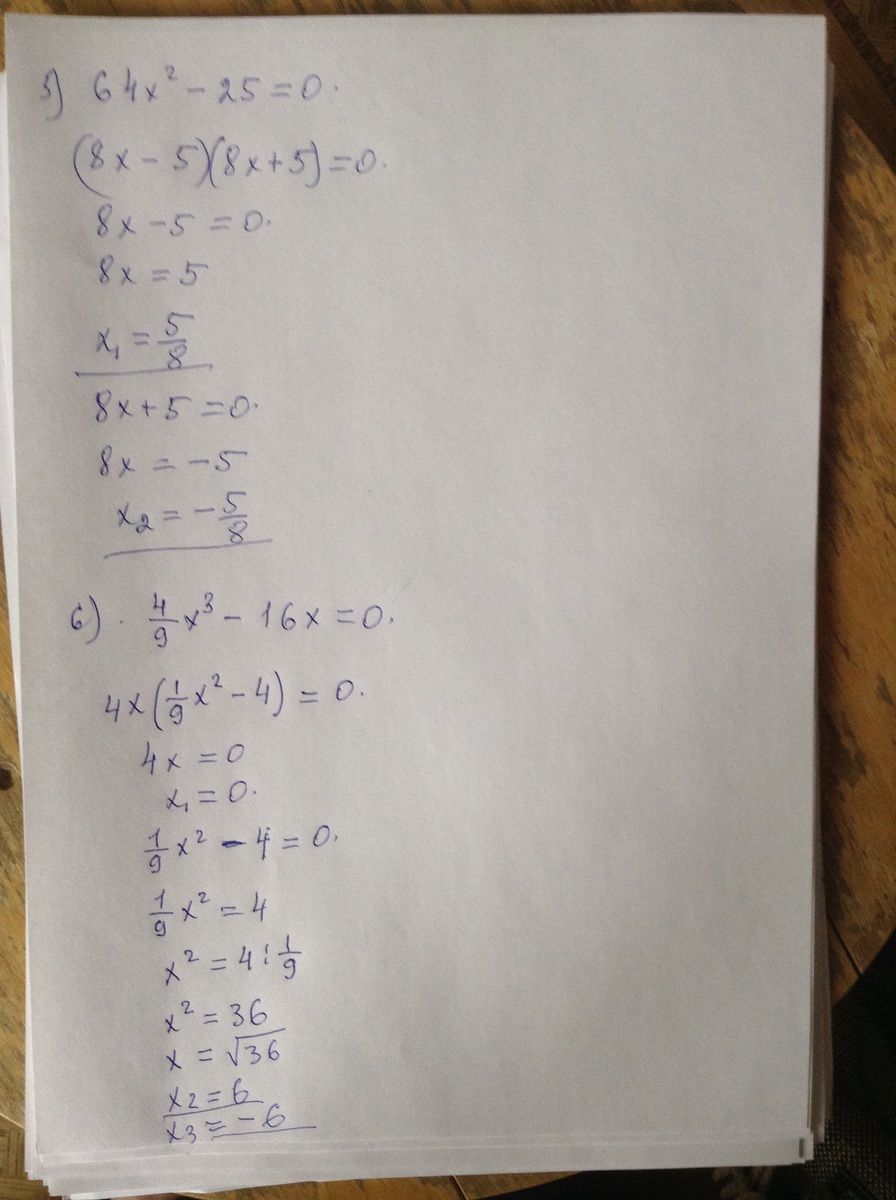 5) 64x² - 25 = 0.
(8x - 5)(8x + 5) = 0.
8x - 5 = 0.
8x = 5
x₁ = 5/8
8x + 5 = 0.
8x = -5
x₂ = -5/8
6) · 4/9 x³ - 16x = 0.
4x(1/9 x² - 4) = 0.
4x = 0
x₁ = 0.
1/9 x² - 4 = 0.
1/9 x² = 4
x² = 4 : 1/9
x² = 36
x = √36
x₂ = 6
x₃ = -6